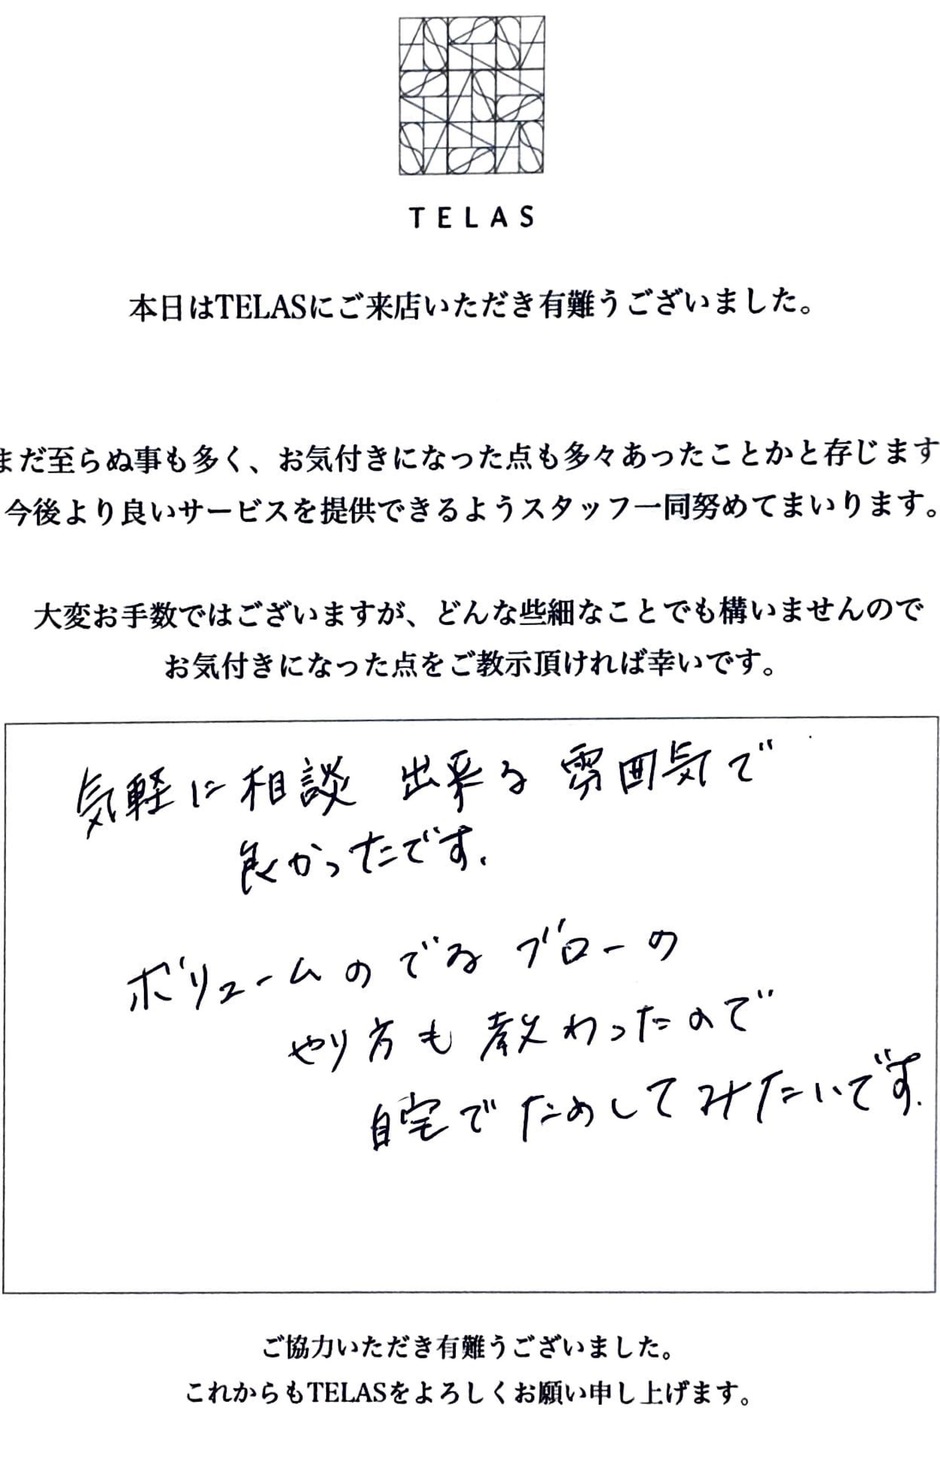 TELAS
本日はTELASにご来店いただき有難うございました。
まだ至らぬ事も多く、お気付きになった点も多々あったことかと存じます
今後より良いサービスを提供できるようスタッフ一同努めてまいります。
大変お手数ではございますが、どんな些細なことでも構いませんので
お気付きになった点をご教示頂ければ幸いです。
気軽に相談 出来る 雰囲気で
良かったです.
ボリュームのでる ブローの
やり方も 教わったので
自宅で ためしてみたいです.
ご協力いただき有難うございました。
これからもTELASをよろしくお願い申し上げます。